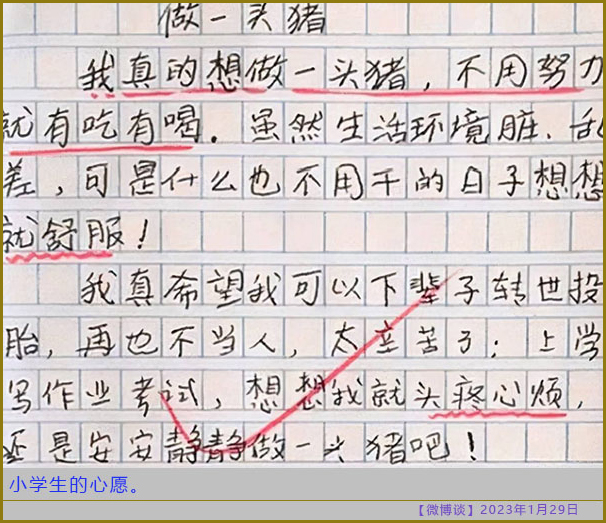 做一头猪
我真的想做一头猪，不用努力
就有吃有喝．虽然生活环境脏、乱
差，可是什么也不用干的日子想想
就舒服！
我真希望我可以下辈子转世投
胎，再也不当人，太辛苦了；上学
写作业考试，想想我就头疼心烦，
还是安安静静做一头猪吧！
小学生的心愿。
【微博谈】2023年1月29日